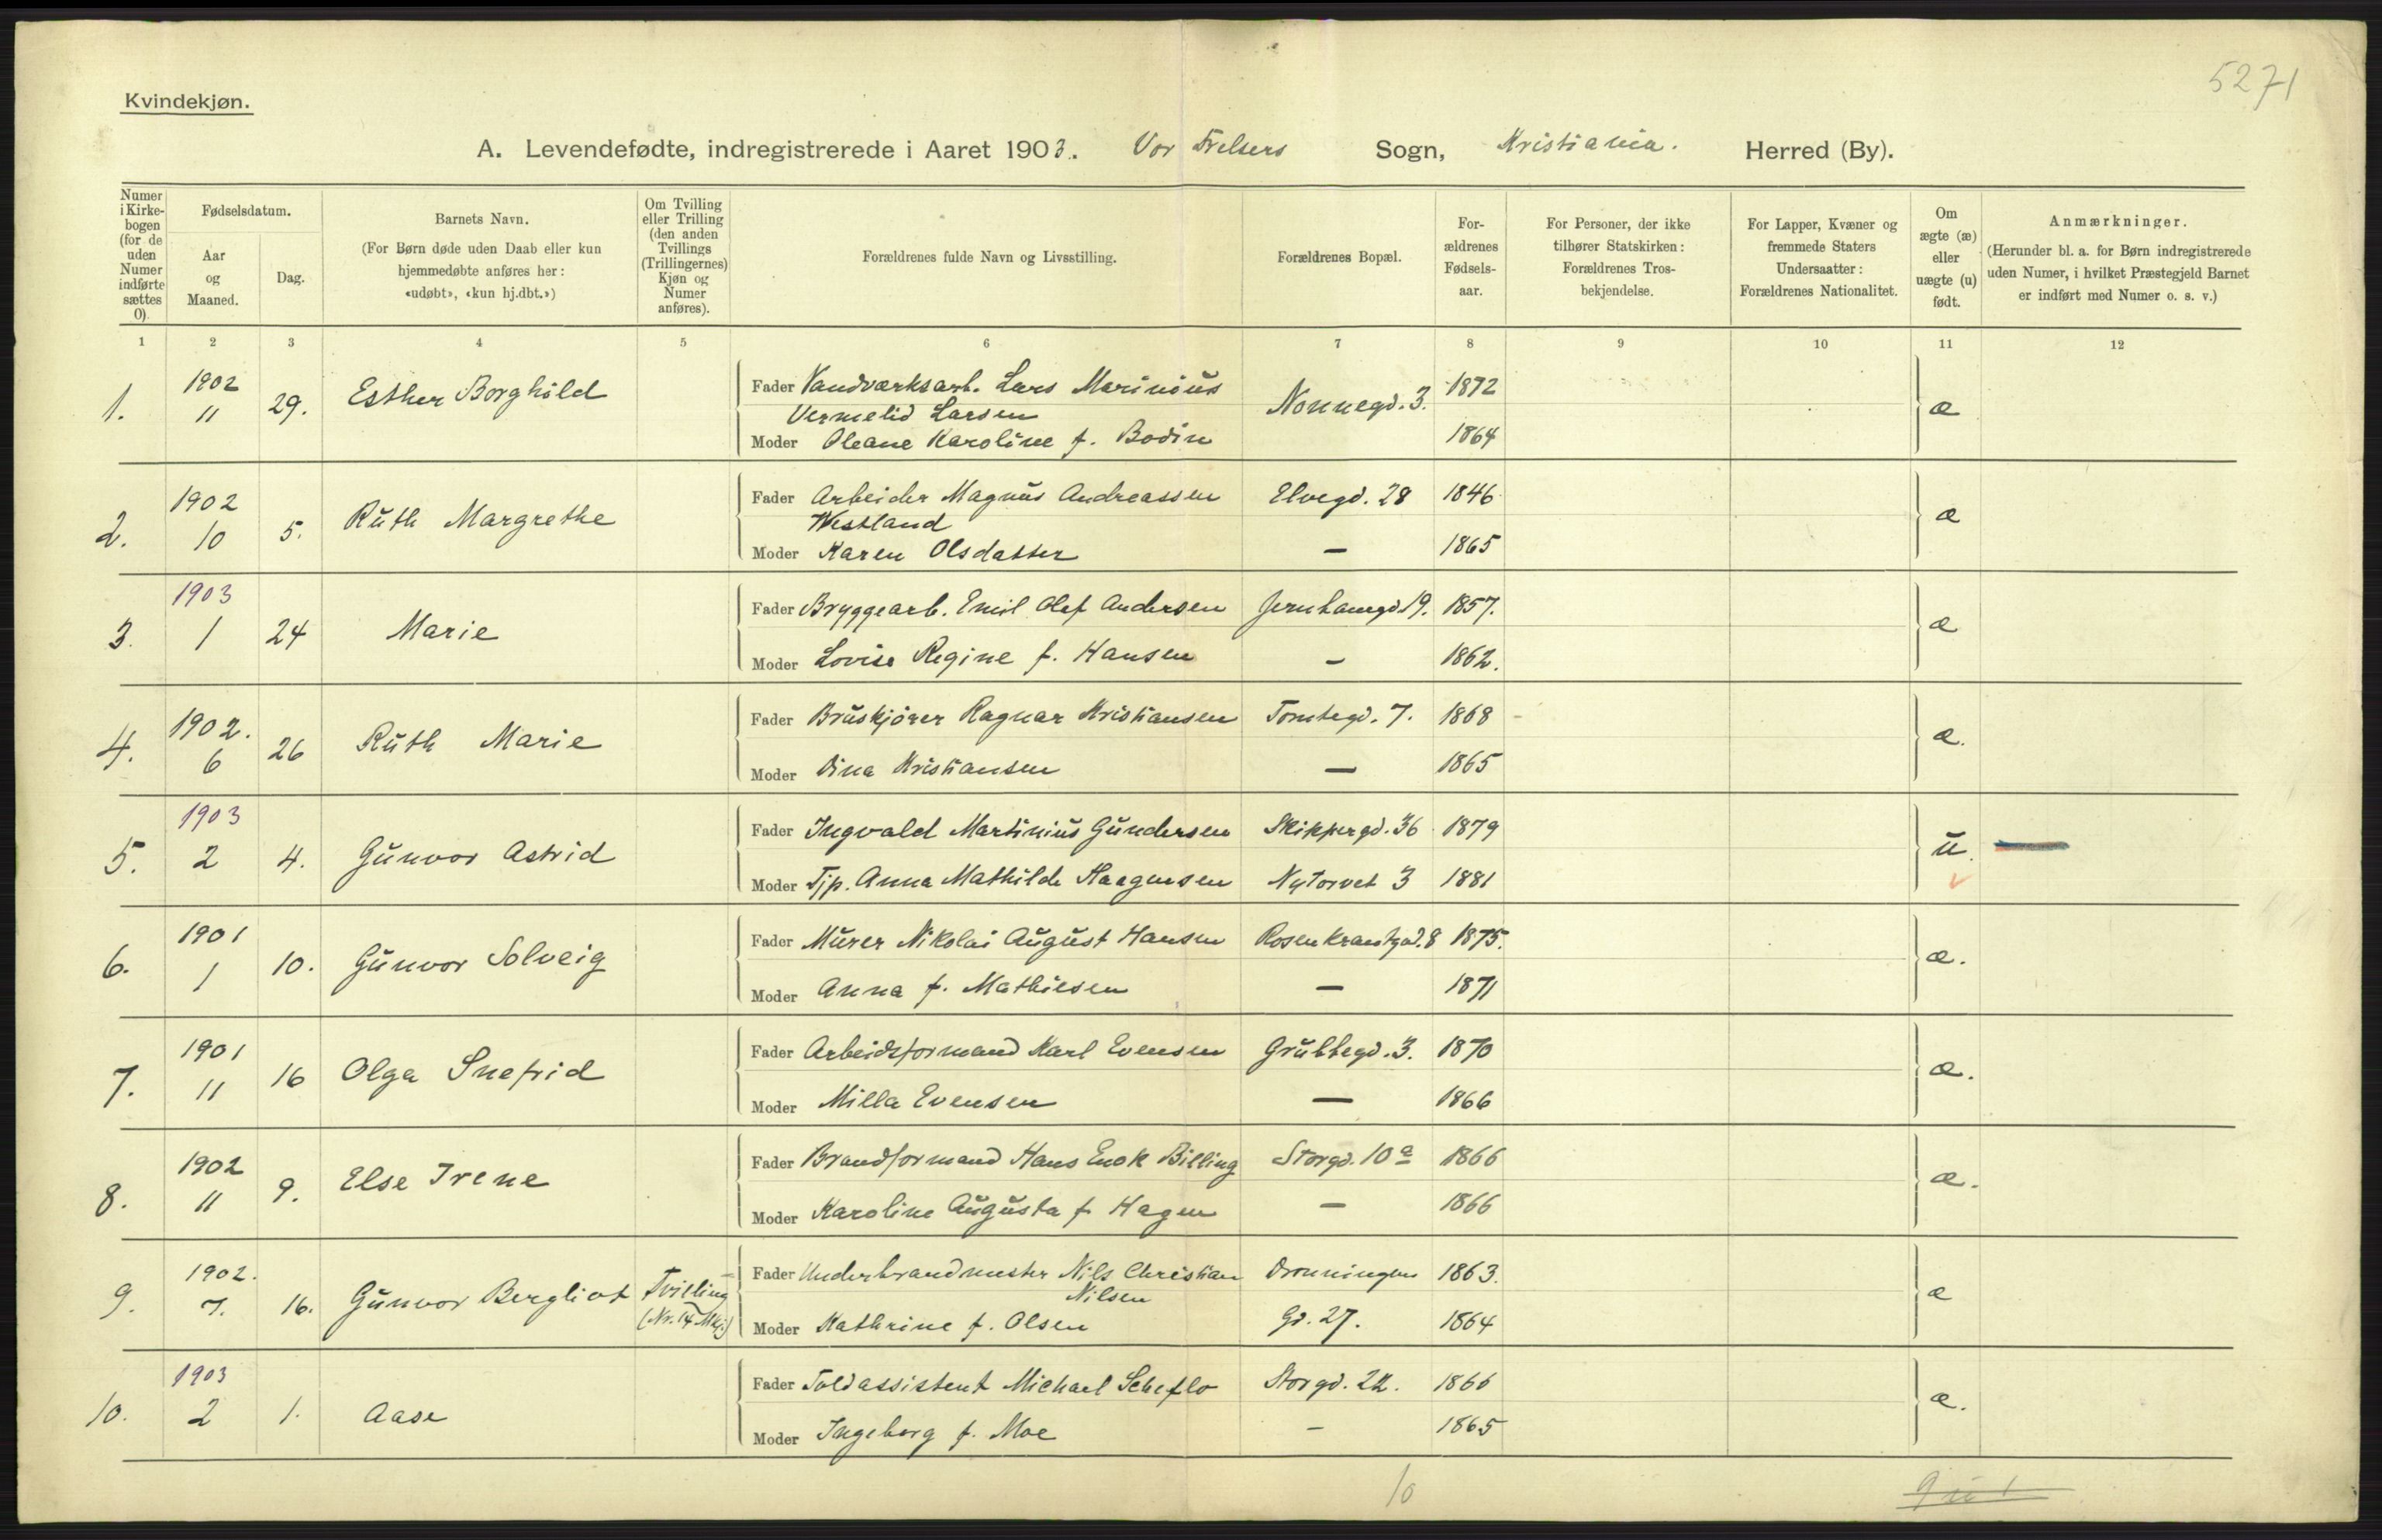 5271
Kvindekjøn.
A. Levendefødte, indregistrerede i Aaret 1903. Vor Frelsers Sogn, Kristiania. Herred (By).
Numer i Kirkebogen (for de uden Numer indførte sættes 0).
Fødselsdatum.
Aar og Maaned.
Dag.
Barnets Navn.
(For Børn døde uden Daab eller kun hjemmedøbte anføres her: «udøbt», «kun hj.dbt.»)
Om Tvilling eller Trilling (den anden Tvillings (Trillingernes) Kjøn og Numer anføres).
Forældrenes fulde Navn og Livsstilling.
Forældrenes Bopæl.
Forældrenes Fødselsaar.
For Personer, der ikke tilhører Statskirken: Forældrenes Trosbekjendelse.
For Lapper, Kvæner og fremmede Staters Undersaatter: Forældrenes Nationalitet.
Om ægte (æ) eller uægte (u) født.
Anmærkninger.
(Herunder bl. a. for Børn indregistrerede uden Numer, i hvilket Præstegjeld Barnet er indført med Numer o. s. v.)
1 2 3 4 5 6 7 8 9 10 11 12
1. 1902 11 29. Esther Borghild Fader Vandværksarb. Lars Marinius Nonnegd. 3. 1872 æ
Vermelid Larsen
Moder Oleane Karoline f. Bodin 1864
2. 1902 10 5. Ruth Margrethe Fader Arbeider Magnus Andreassen Elvegd. 28 1846 æ
Westland
Moder Karen Olsdatter — 1865
3. 1903 1 24 Marie Fader Bryggearb. Emil Olaf Andersen 19. 1857. æ
Moder Lovise Regine f. Hansen — 1862.
4. 1902. 6 26 Ruth Marie Fader Bruskjører Ragnar Kristiansen Tomtegd. 7. 1868 æ.
Moder Dina Kristiansen — 1865
5. 1903 2 4. Gunvor Astrid Fader Ingvald Martinius Gundersen Skippergd. 36 1879 u.
Moder Tjp. Anna Mathilde Haagensen Nytorvet 3 1881
6. 1901 1 10. Gunvor Solveig Fader Murer Nikolai August Hansen Rosenkrantzgd. 8 1875. æ.
Moder Anna f. Mathiesen — 1871
7. 1901 11 16 Olga Snefrid Fader Arbeidsformand Karl Evensen Grubbegd. 3. 1870 æ.
Moder Milla Evensen — 1866
8. 1902 11 9. Else Irene Fader Brandformand Hans Enok Billing Storgd. 10a 1866 æ.
Moder Karoline Augusta f. Hagen — 1866
9. 1902. 7. 16. Gunvor Bergliot Tvilling Fader Underbrandmester Nils Christian Dronningens 1863. æ
Nilsen
(Nr. 14 Mkj.) Moder Kathrine f. Olsen Gd. 27. 1864
10. 1903 2 1. Aase Fader Toldassistent Michael Scheflo Storgd. 22. 1866 æ.
Moder Ingeborg f. Moe — 1865
10